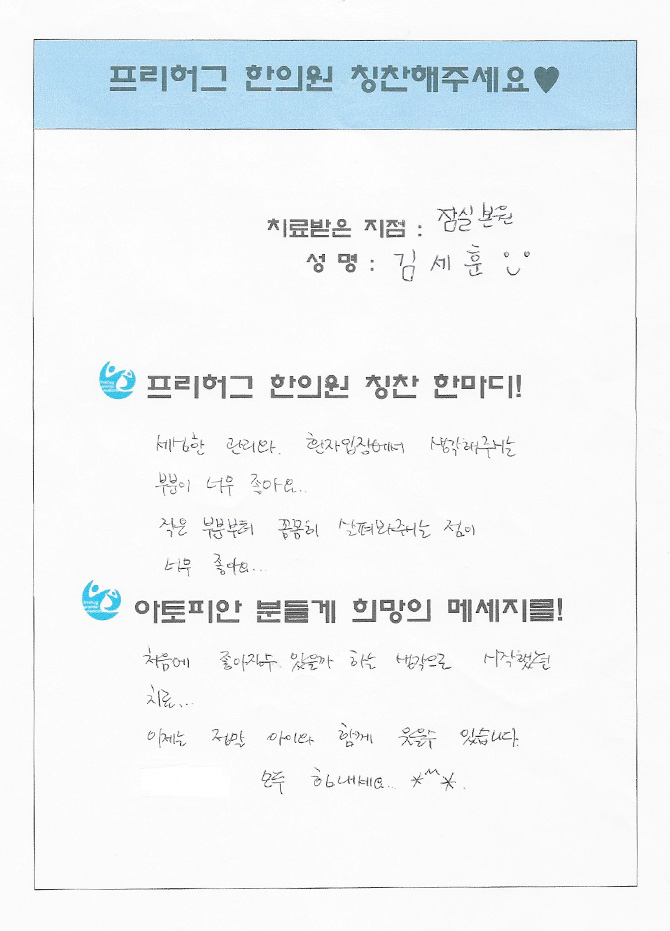 프리허그 한의원 칭찬해주세요♥
치료받은 지점 : 잠실본원
성 명 : 김세훈
프리허그 한의원 칭찬 한마디!
세심한 관리와. 환자입장에서 생각해주시는
부분이 너무 좋아요..
작은 부분부터 꼼꼼히 살펴봐주시는 점이
너무 좋아요...
아토피안 분들게 희망의 메세지를!
처음에 좋아질수 있을까 하는 생각으로 시작했던
치료...
이제는 정말 아이와 함께 웃을수 있습니다.
모두 힘내세요.. *^^*.